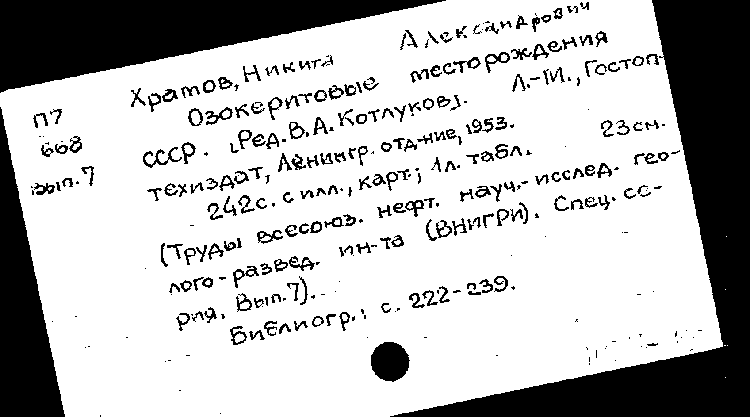 Храмов, Никита Александрович
П7 Озокеритовые месторождения
668 СССР. [Ред. В.А. Котлуков]. Л.-М., Гостоп-
вып.7 техиздат, Ленингр. отд-ние, 1953.
242с. с илл., карт; 1л. табл. 23см.
(Труды всесоюз. нефт. науч.-исслед. гео-
лого-развед. ин-та (ВНИГРИ). Спец. се-
рия. Вып.7).
Библиогр.: с. 222-239.